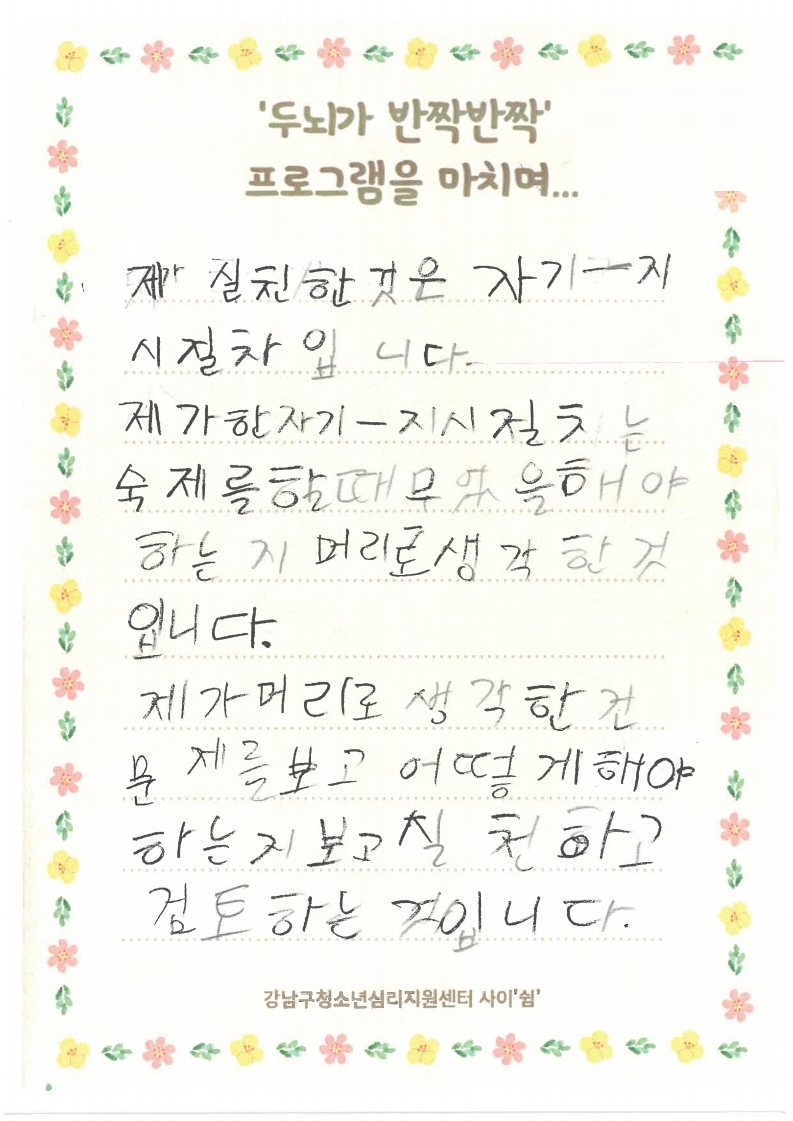 '두뇌가 반짝반짝'
프로그램을 마치며...
제가 실천한것은 자기-지
시절차입니다.
제가한자기-지시절차는
숙제를할때무엇을해야
하는지 머리로생각한것
입니다.
제가머리로 생각한건
문제를보고 어떻게해야
하는지보고실천하고
검토하는것입니다.
강남구청소년심리지원센터 사이'쉼'